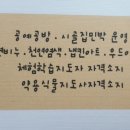 공예공방 · 시골집민박 운영
비누 · 천연염색 · 냅킨아트 · 우드아
체험학습지도자 자격소지
약용식물지도사자격소지